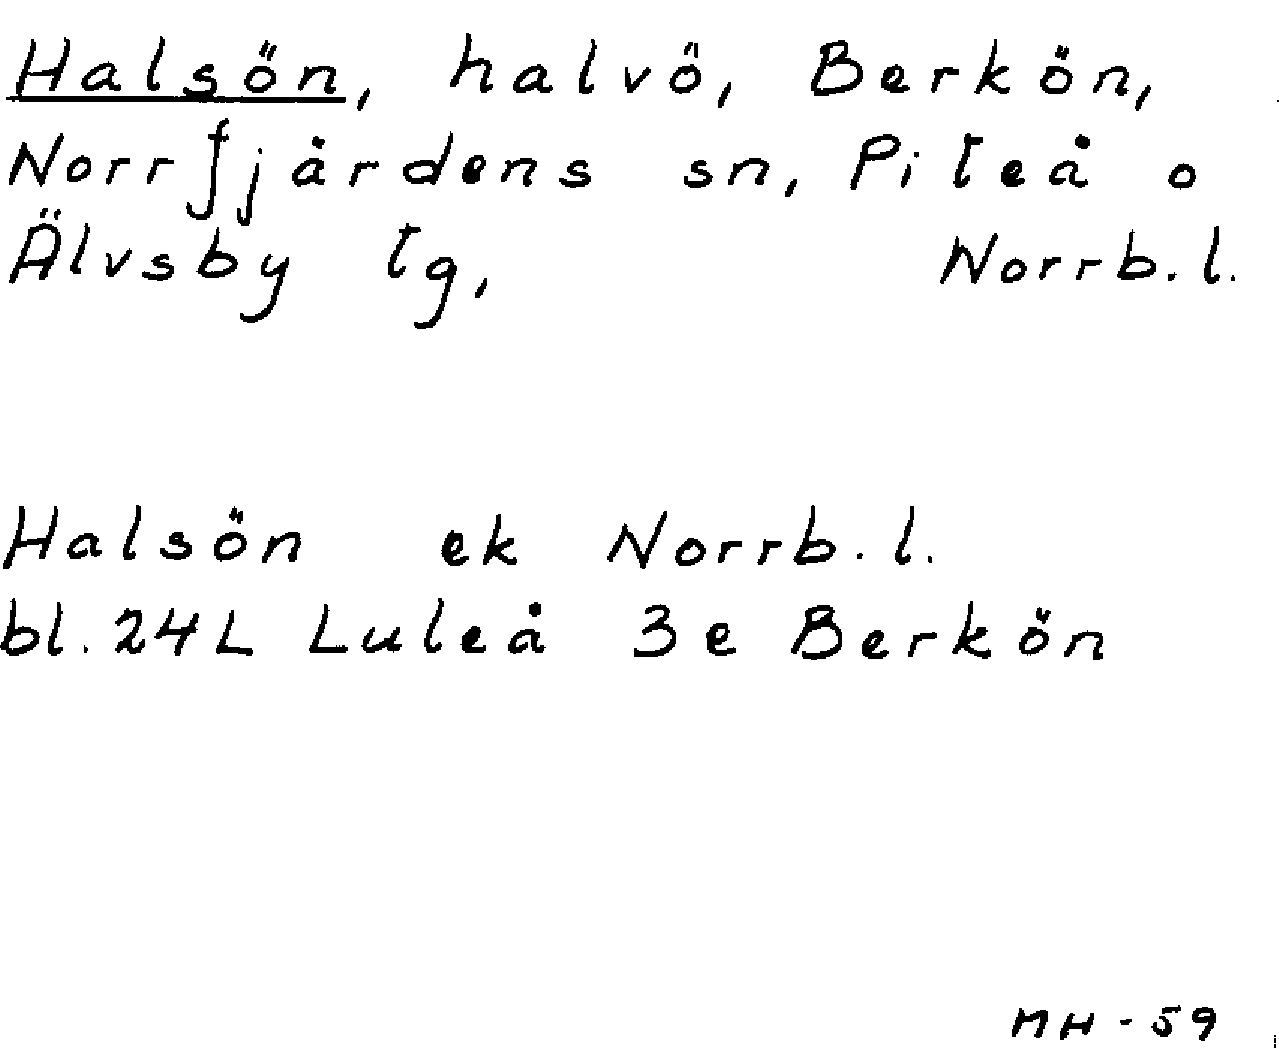 Halsön, halvö, Berkön,
Norrfjärdens sn, Piteå o
Älvsby tg, Norrb.l.
Halsön ek Norrb.l.
bl.24L Luleå 3e Berkön
MH-59